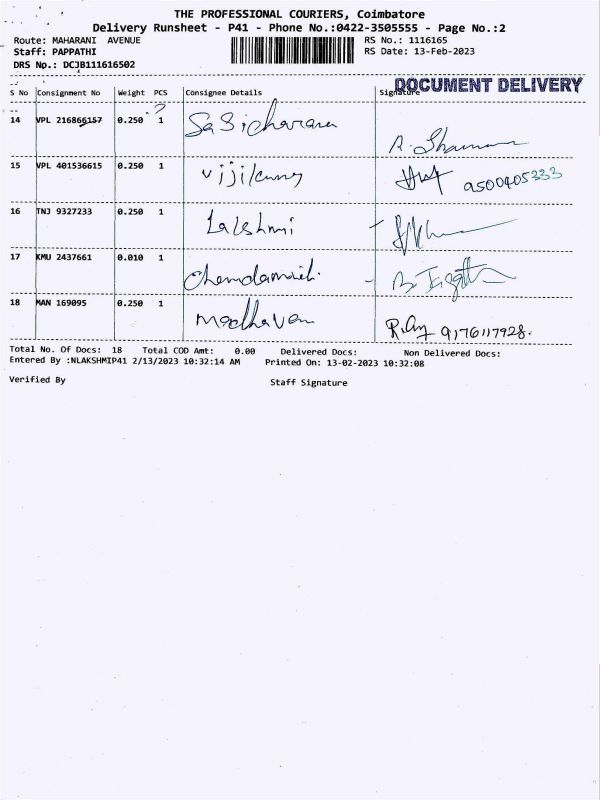 THE PROFESSIONAL COURIERS, Coimbatore
Delivery Runsheet - P41 - Phone No.:0422-3505555 - Page No.:2
Route: MAHARANI AVENUE RS No.: 1116165
Staff: PAPPATHI RS Date: 13-Feb-2023
DRS No.: DCJB111616502
DOCUMENT DELIVERY
S No Consignment No Weight PCS Consignee Details Signature
14 VPL 216866157 0.250 1 Sasicharana
15 VPL 401536615 0.250 1 9500405333
16 TNJ 9327233 0.250 1 Lakshmi
17 KMU 2437661 0.010 1
18 MAN 169095 0.250 1 Madhavan 9176117928.
Total No. Of Docs: 18 Total COD Amt: 0.00 Delivered Docs: Non Delivered Docs:
Entered By :NLAKSHMIP41 2/13/2023 10:32:14 AM Printed On: 13-02-2023 10:32:08
Verified By Staff Signature